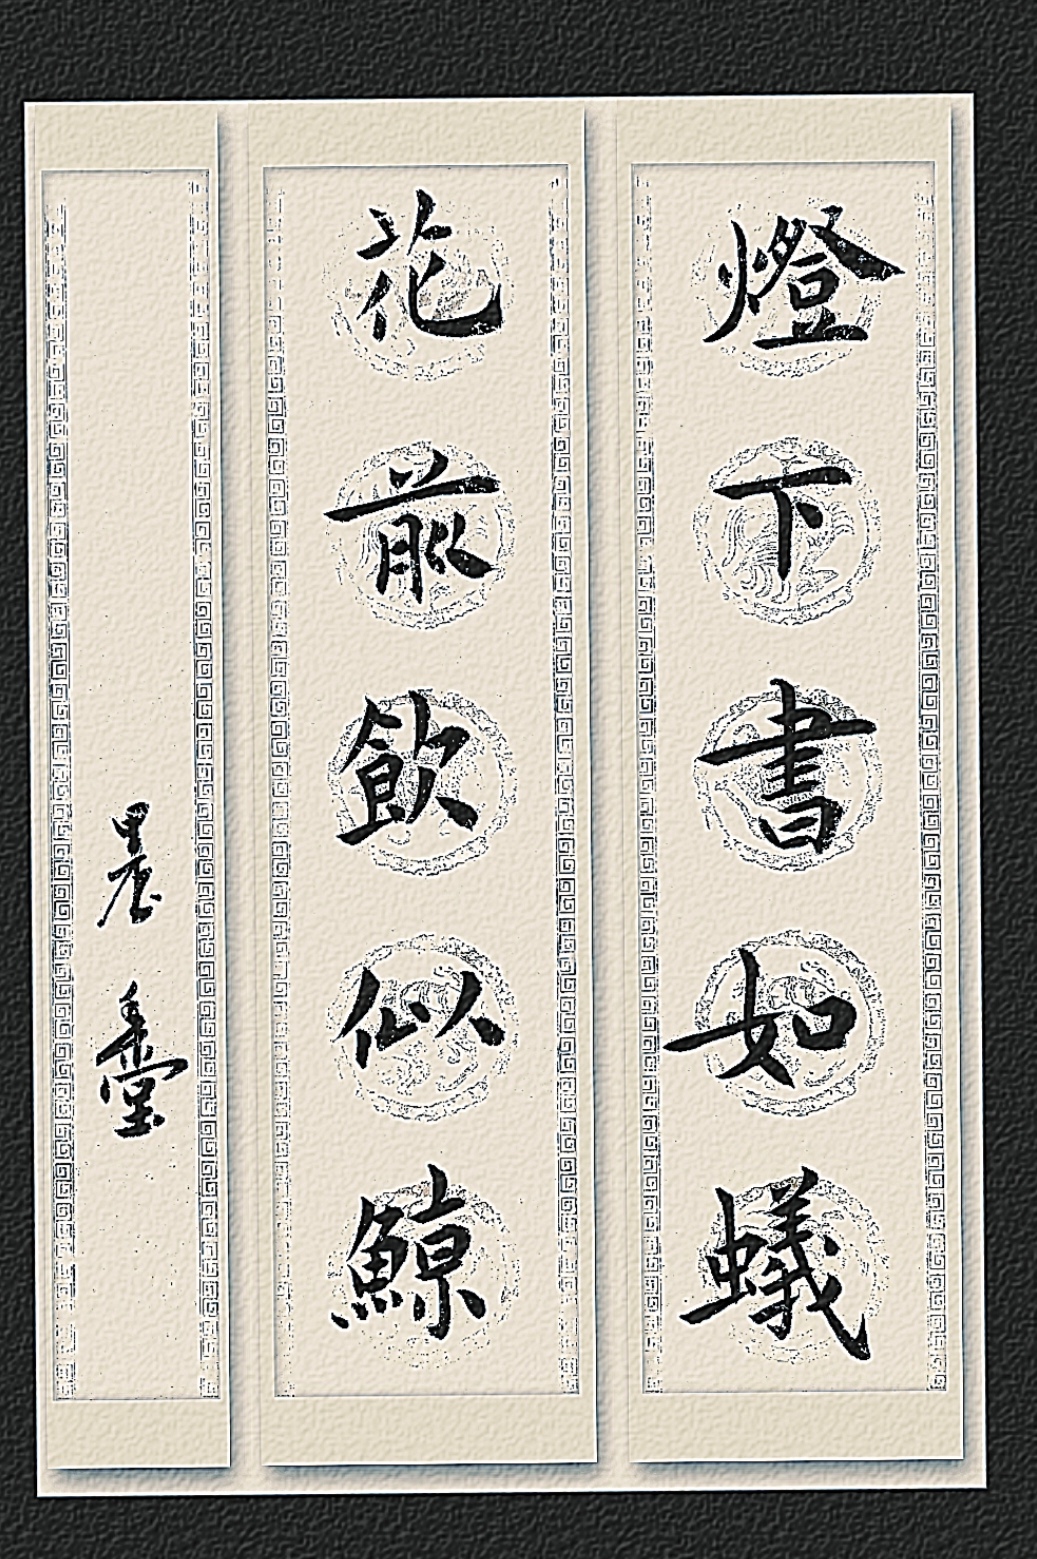 燈下書如蟻
花前飲似鯨
晨書